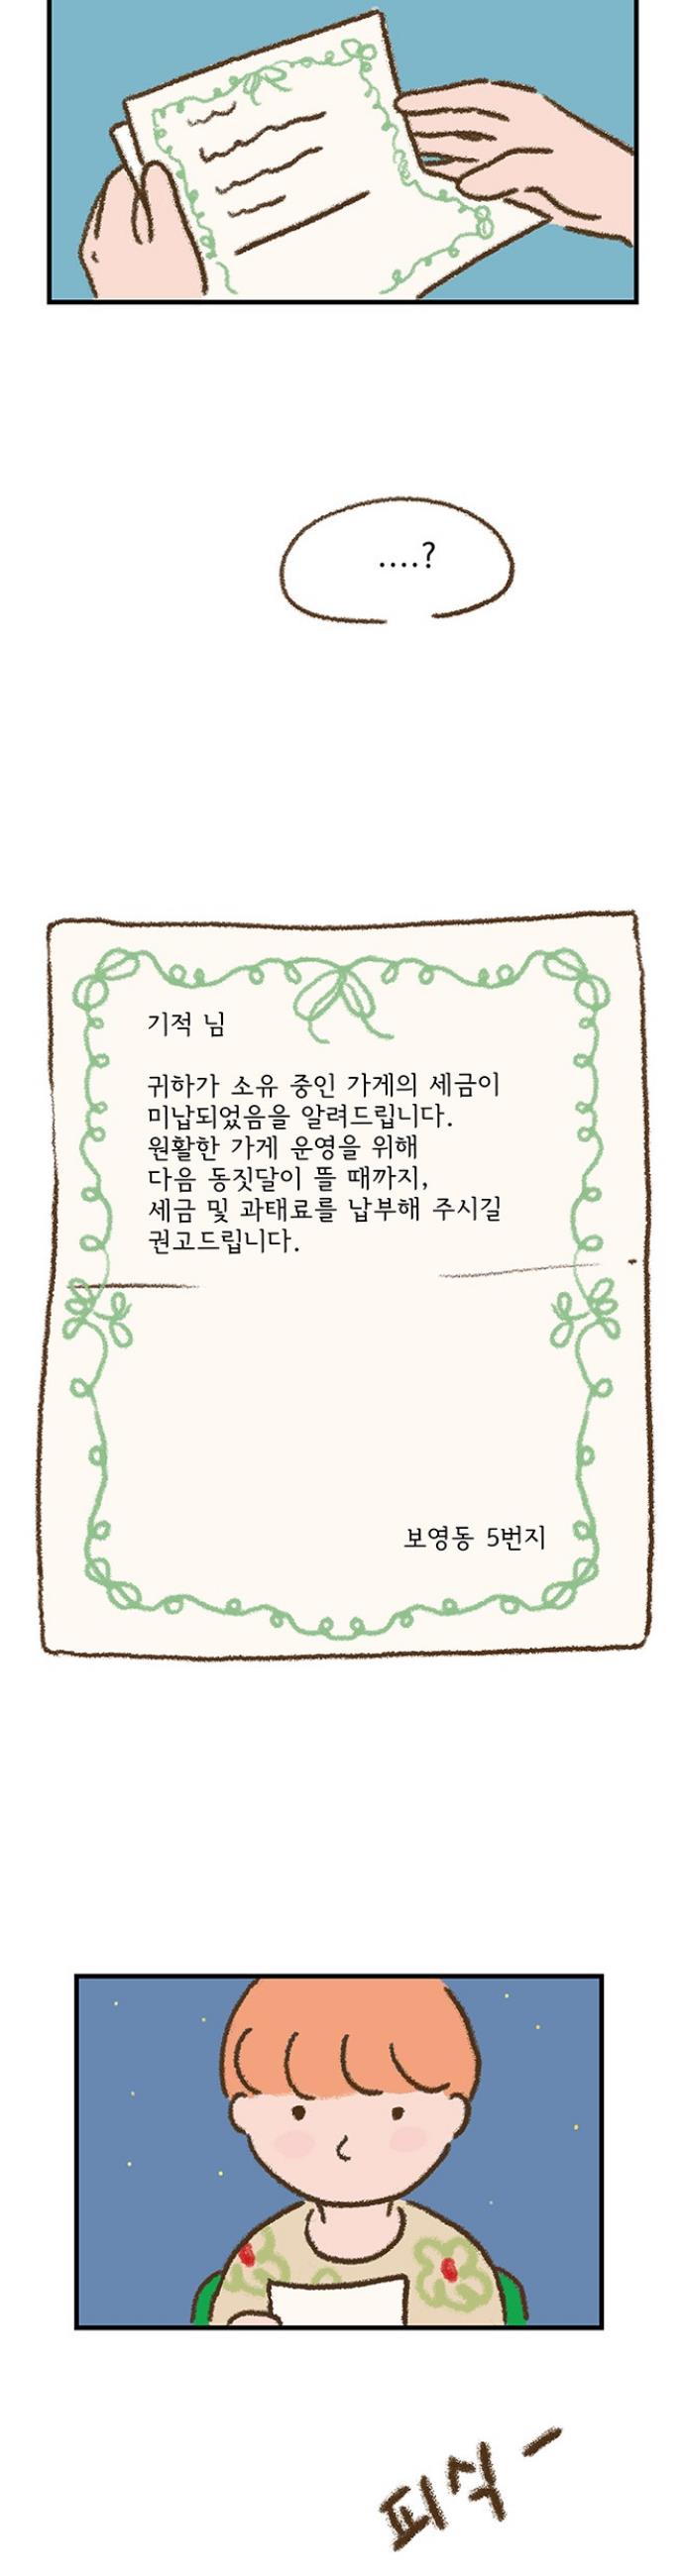 ....?
기적 님
귀하가 소유 중인 가게의 세금이
미납되었음을 알려드립니다.
원활한 가게 운영을 위해
다음 동짓달이 뜰 때까지,
세금 및 과태료를 납부해 주시길
권고드립니다.
보영동 5번지
피식-